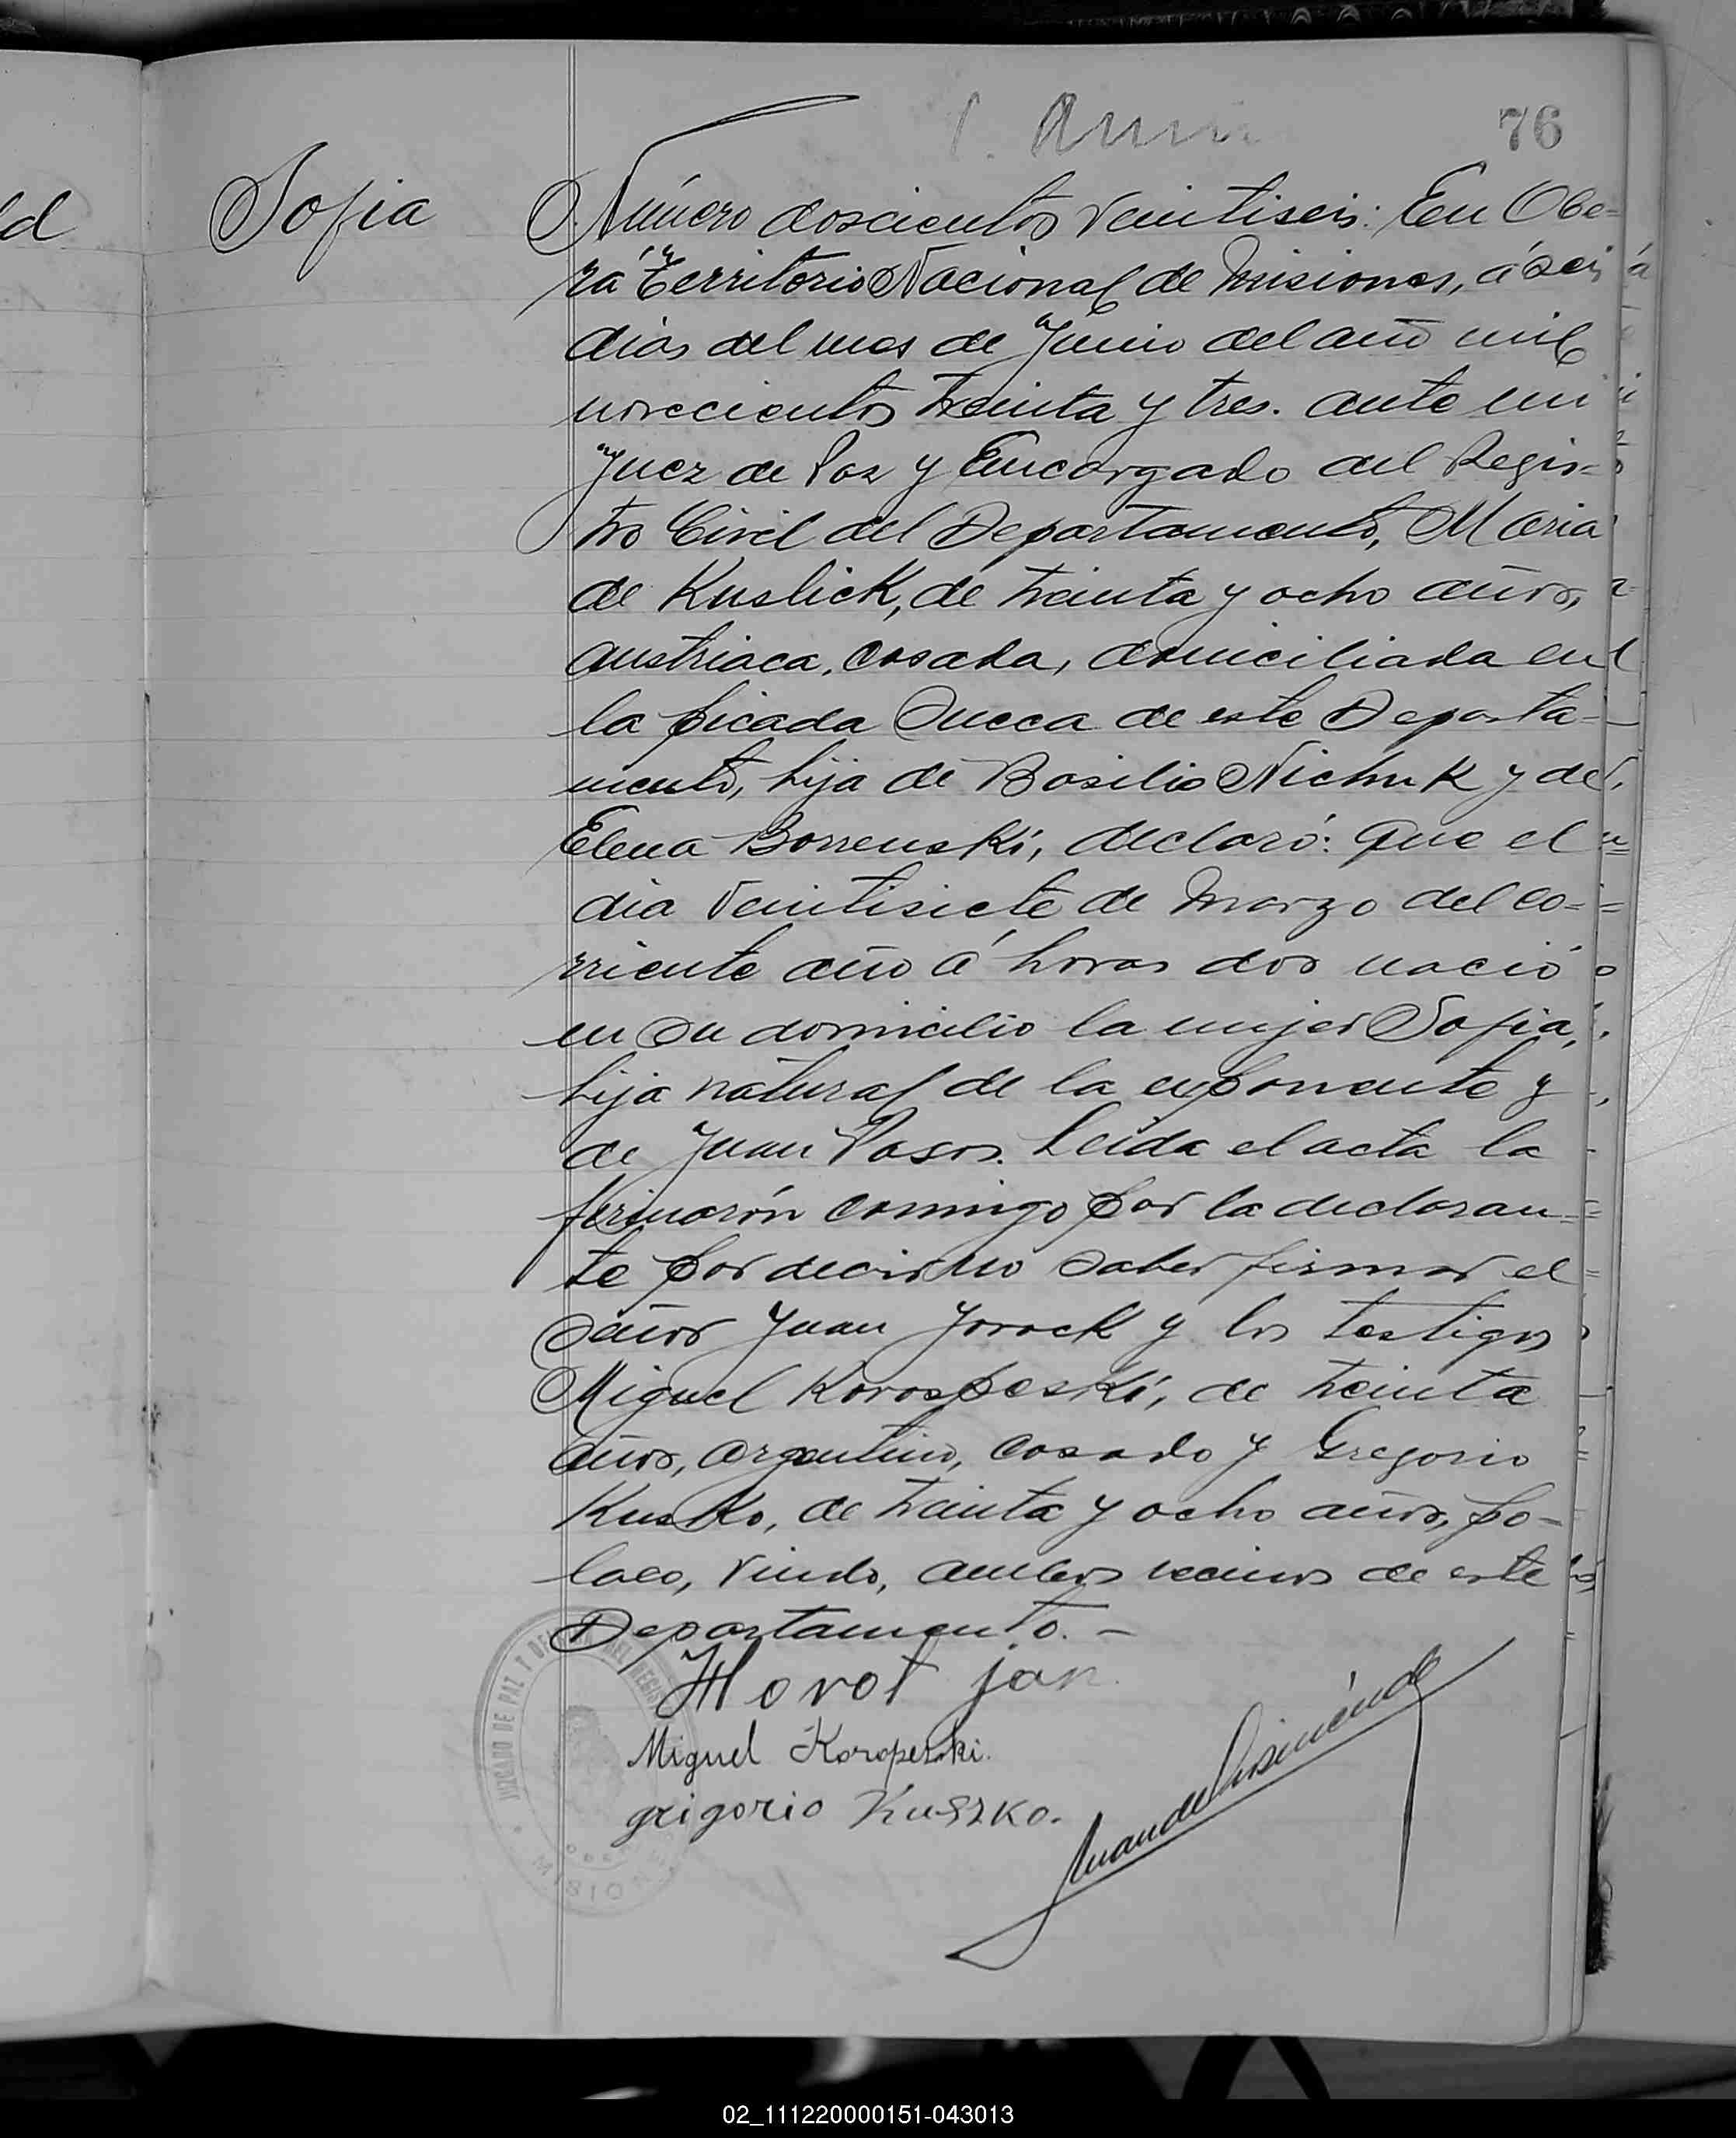 76
Sofia
Número doscientos veintiseis: En Obe-
rá Territorio Nacional de Misiones, á seis
dias del mes de Junio del año mil
novecientos treinta y tres. ante mi
Juez de Paz y Encargado del Regis-
tro Civil del Departamento, Maria
de Kuslick, de treinta y ocho años,
austriaca, casada, domiciliada en
la picada Sueca de este Departa-
mento, hija de Basilio Nichuk y de
Elena Borrenski, declaró: Que el
dia veintisiete de Marzo del co-
rriente año á horas dos nació
en su domicilio la mujer Sofia,
hija natural de la exponente y
de Juan Pasos. Leida el acta la
firmarón conmigo por la declaran-
te por decir no saber firmar el
señor Juan Jorock y los testigos
Miguel Korospeski, de treinta
años, argentino, casado y Gregorio
Kusko, de treinta y ocho años, po-
laco, viudo, ambos vecinos de este
Departamento. -
Horot jan
Miguel Koropeski.
grigorio Kuszko.
JUZGADO DE PAZ Y DEL REGIS
02_111220000151-043013